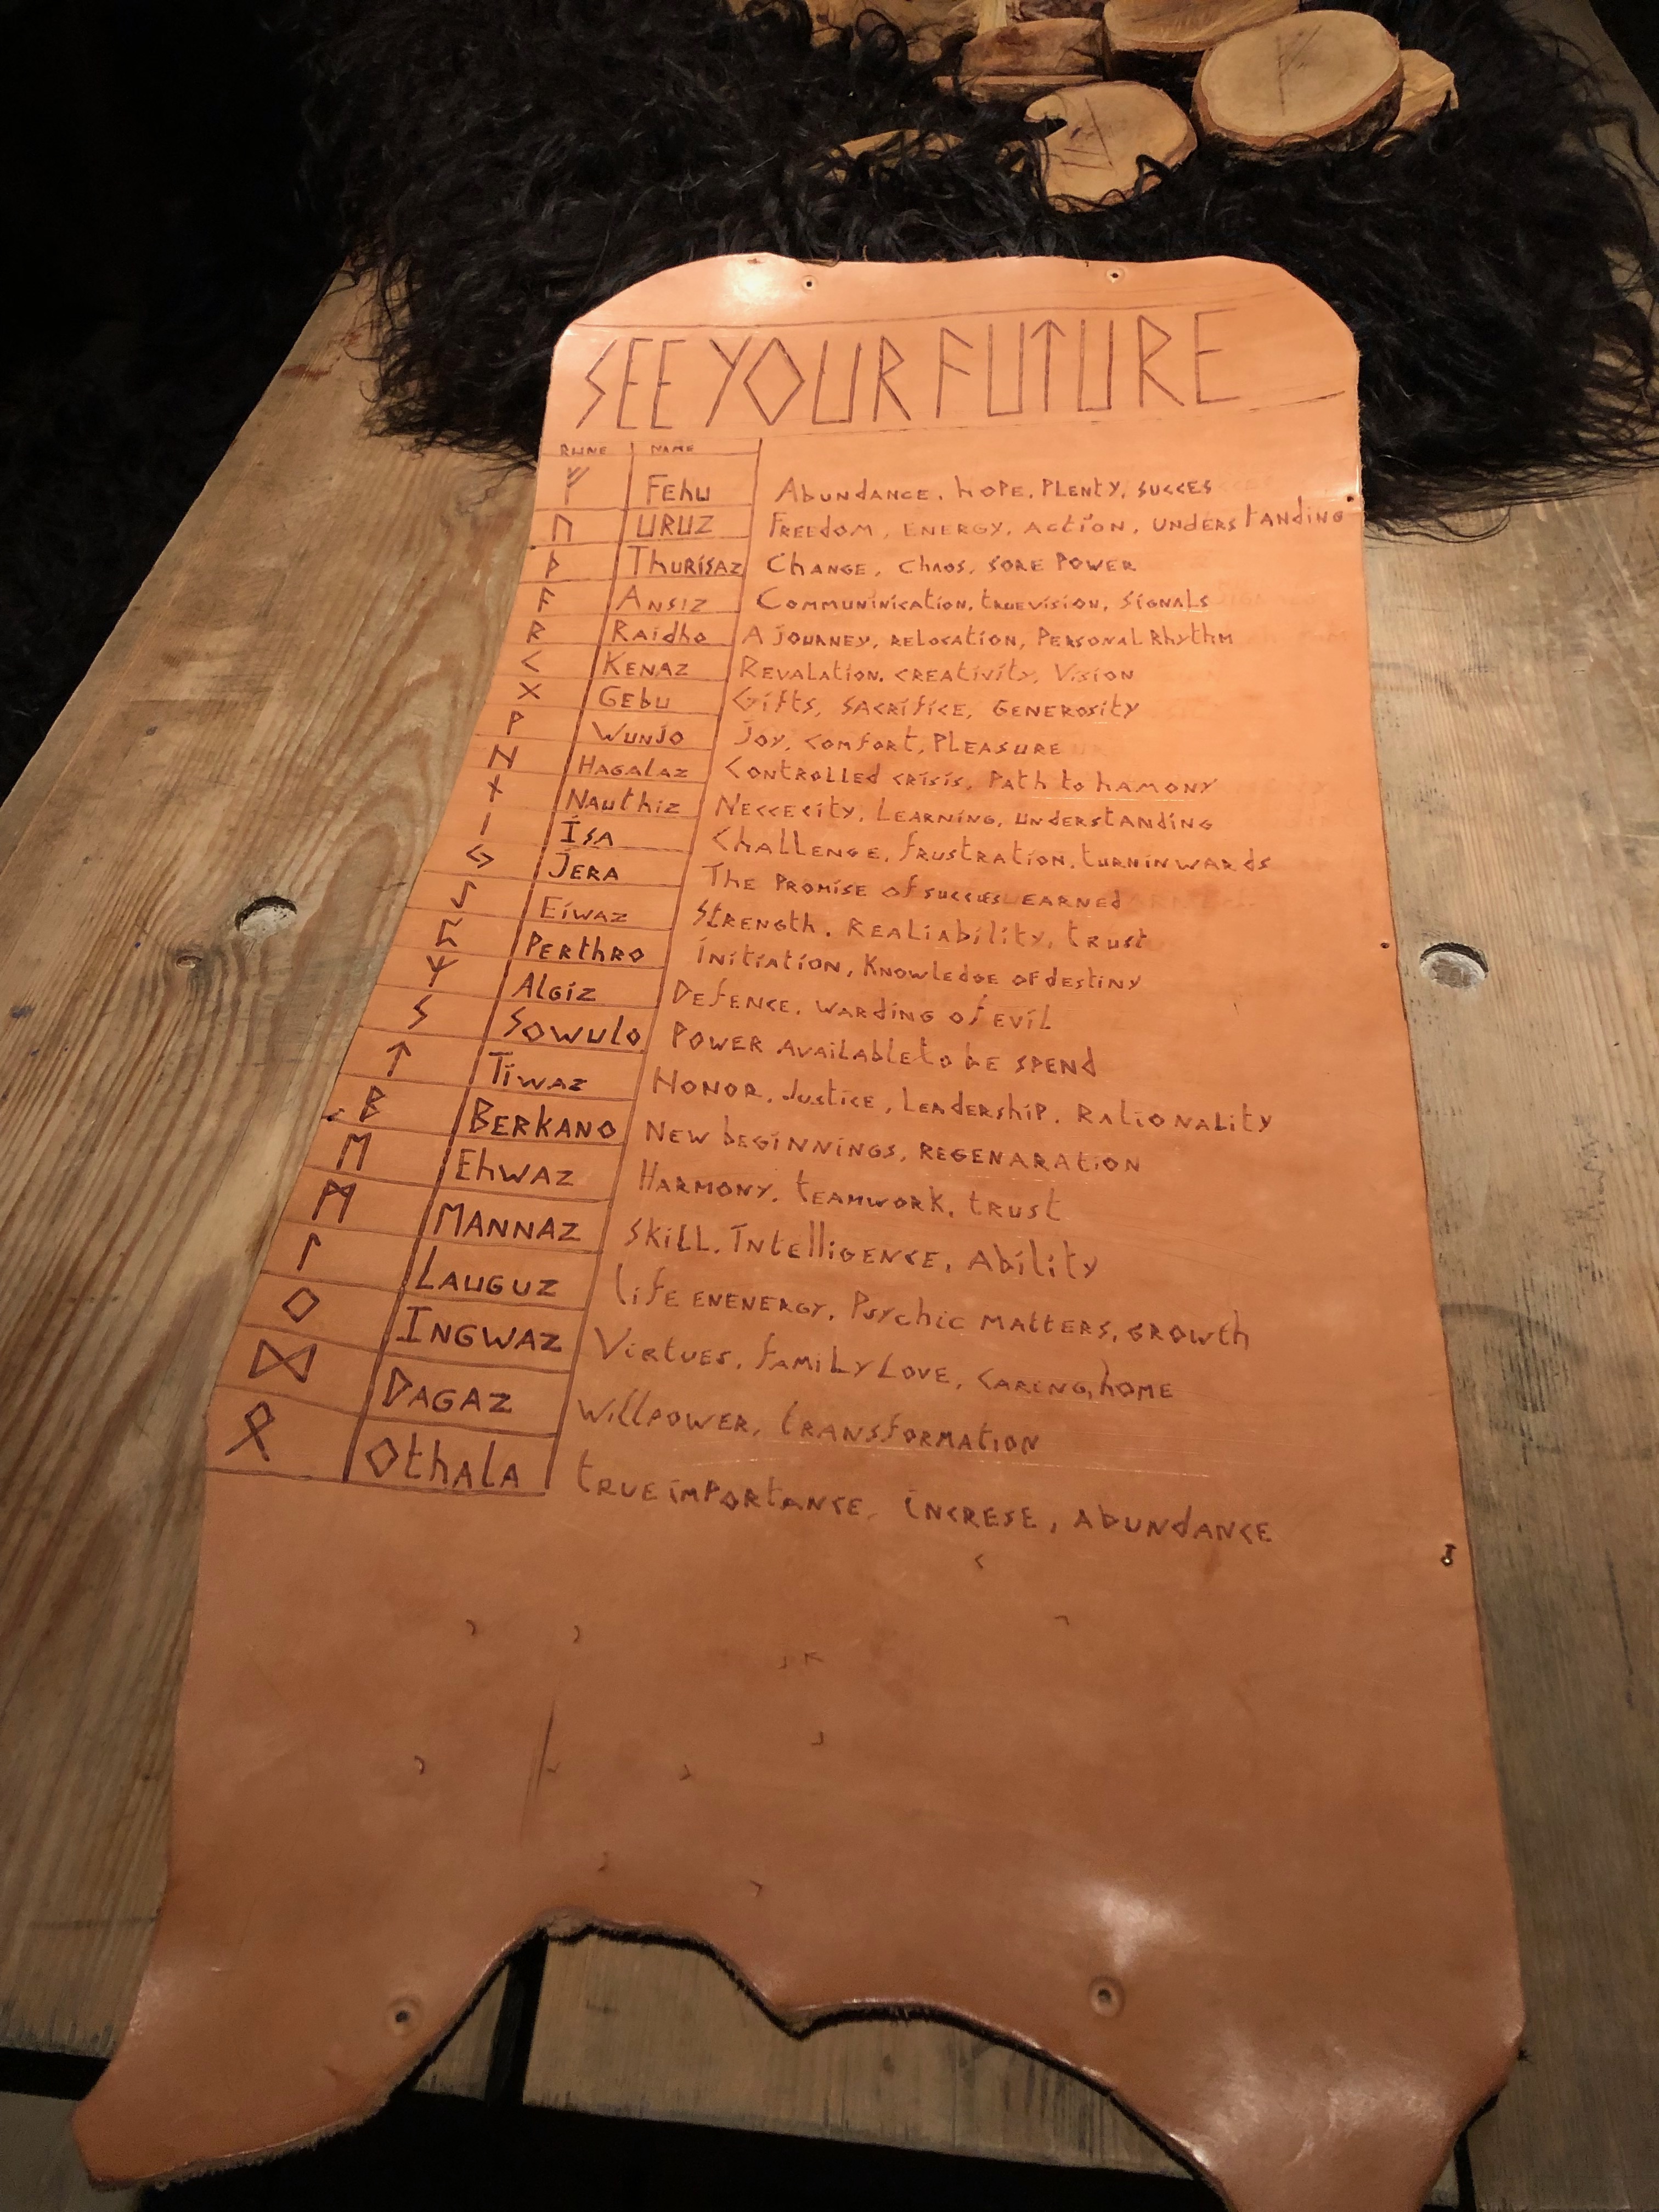 SEE YOUR FUTURE
RUNE NAME
ᚠ Fehu Abundance, hope, plenty, succes
ᚢ URUZ Freedom, energy, action, understanding
ᚦ Thurisaz Change, chaos, sore power
ᚨ Ansiz Communinication, true vision, signals
ᚱ Raidho A journey, relocation, personal rhythm
ᚲ Kenaz Revalation, creativity, vision
ᚷ Gebu Gifts, sacrifice, generosity
ᚹ Wunjo Joy, comfort, pleasure
ᚺ Hagalaz Controlled crisis, path to hamony
ᚾ Nauthiz Neccecity, learning, understanding
ᛁ Ísa Challenge, frustration, turn inwards
ᛃ Jera The promise of succes earned
ᛇ Eiwaz Strength, realiability, trust
ᛈ Perthro Initiation, knowledge of destiny
ᛉ Algiz Defence, warding of evil
ᛊ Sowulo Power available to be spend
ᛏ Tiwaz Honor, justice, leadership, rationality
ᛒ Berkano New beginnings, regenaration
ᛖ Ehwaz Harmony, teamwork, trust
ᛗ Mannaz Skill, intelligence, ability
ᛚ Lauguz Life enenergy, psychic matters, growth
ᛜ Ingwaz Virtues, family love, caring, home
ᛞ Dagaz Willpower, transformation
ᛟ Othala True importance, increse, abundance